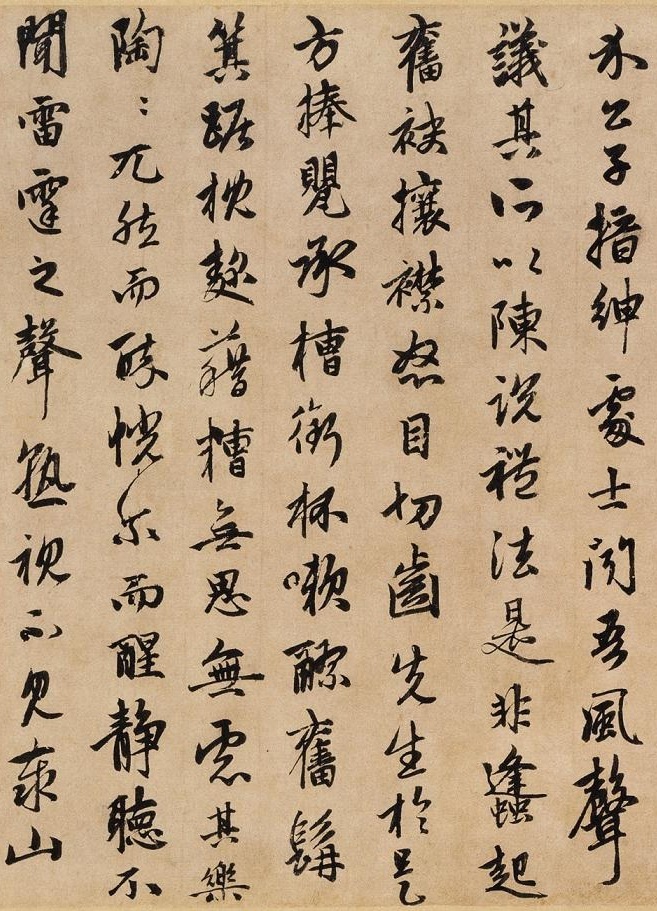 介公子搢紳處士聞吾風聲
議其所以陳説禮法是非蠭起
奮袂攘襟怒目切齒先生於是
方捧甖承槽銜杯嗽醪奮髯
箕踞枕麹藉糟無思無慮其樂
陶：兀然而醉恍尔而醒静聽不
聞雷霆之聲熟視不見泰山